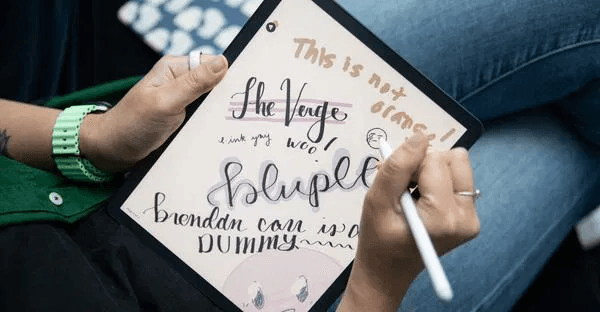 This is not
orange!
The Verge
e ink yay woo!
blurple
brendan carr is a
DUMMY